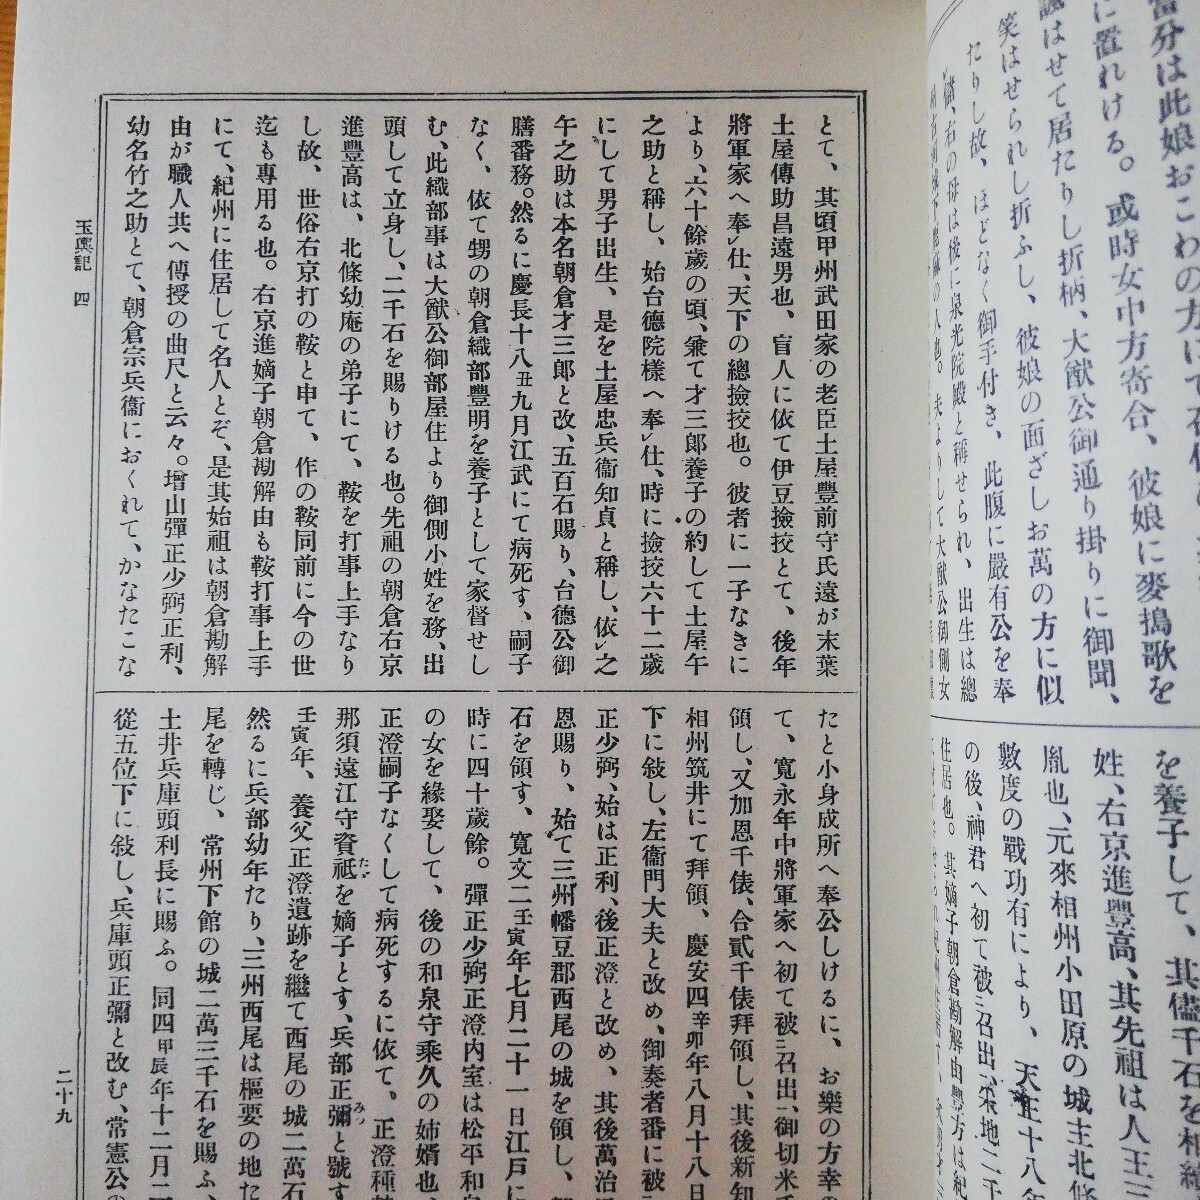 當分は此娘おこわの方にて
に置れける。或時女中方寄合、彼娘に麥搗歌を
諷はせて居たりし折柄、大猷公御通り掛りに御聞、
笑はせられし折ふし、彼娘の面ざしお萬の方に似
たりし故、ほどなく御手付き、此腹に嚴有公を奉
右の母は後に泉光院殿と稱せられ、出生は總
の人也。夫よりして大猷公御側女
を養子して、其儘千石を相續
姓、右京進豐高、其先祖は人王三
胤也、元來相州小田原の城主北條
數度の戰功有により、天正十八年
の後、神君へ初て被召出、釆地二千
住居也。其嫡子朝倉勘解由豐方は紀
とて、其頃甲州武田家の老臣土屋豐前守氏遠が末葉
土屋傳助昌遠男也、盲人に依て伊豆撿挍とて、後年
將軍家へ奉レ仕、天下の總撿挍也。彼者に一子なきに
より、六十餘歲の頃、兼て才三郎養子の約して土屋午
之助と稱し、始台德院樣へ奉レ仕、時に撿挍六十二歲
にして男子出生、是を土屋忠兵衞知貞と稱し、依レ之
午之助は本名朝倉才三郎と改、五百石賜り、台德公御
膳番務。然るに慶長十八丑九月江武にて病死す、嗣子
なく、依て甥の朝倉織部豐明を養子として家督せし
む、此織部事は大猷公御部屋住より御側小姓を務、出
頭して立身し、二千石を賜りける也。先祖の朝倉右京
進豐高は、北條幼庵の弟子にて、鞍を打事上手なり
し故、世俗右京打の鞍と申て、作の鞍同前に今の世
迄も專用る也。右京進嫡子朝倉勘解由も鞍打事上手
にて、紀州に住居して名人とぞ、是其始祖は朝倉勘解
由が職人共へ傳授の曲尺と云々。增山彈正少弼正利、
幼名竹之助とて、朝倉宗兵衞におくれて、かなたこな
たと小身成所へ奉公しけるに、お樂の方幸の
て、寬永年中將軍家へ初て被二召出一、御切米千
領し、又加恩千俵、合貳千俵拜領し、其後新知
相州筑井にて拜領、慶安四辛卯年八月十八日
下に敍し、左衞門大夫と改め、御奏者番に被
正少弼、始は正利、後正澄と改め、其後萬治
恩賜り、始て三州幡豆郡西尾の城を領し、
石を領す、寬文二壬寅年七月二十一日江戶に
時に四十歲餘。彈正少弼正澄內室は松平和泉
の女を緣娶して、後の和泉守乘久の姉婿也、
正澄嗣子なくして病死するに依て、正澄種
那須遠江守資祗たゞを嫡子とす、兵部正彌みつと號す
壬寅年、養父正澄遺跡を繼て西尾の城二萬石
然るに兵部幼年たり、三州西尾は樞要の地た
尾を轉じ、常州下館の城二萬三千石を賜ふ、
土井兵庫頭利長に賜ふ。同四甲辰年十二月二
從五位下に敍し、兵庫頭正彌と改む、常憲公の
玉輿記 四
二十九